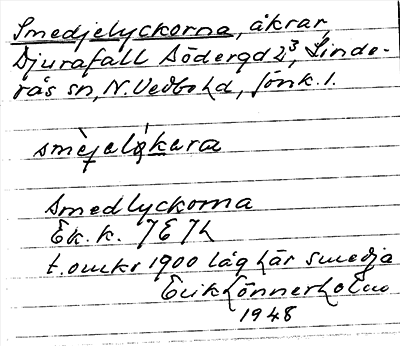 Smedjelyckorna, åkrar,
Djurafall Södergd 2³, Linde-
rås sn, N. Vedbo hd, Jönk. l.
smèjelykara
Smedlyckorna
Ek. k. 7E7h
t. omkr 1900 låg här smedja
Erik Lönnerholm
1948